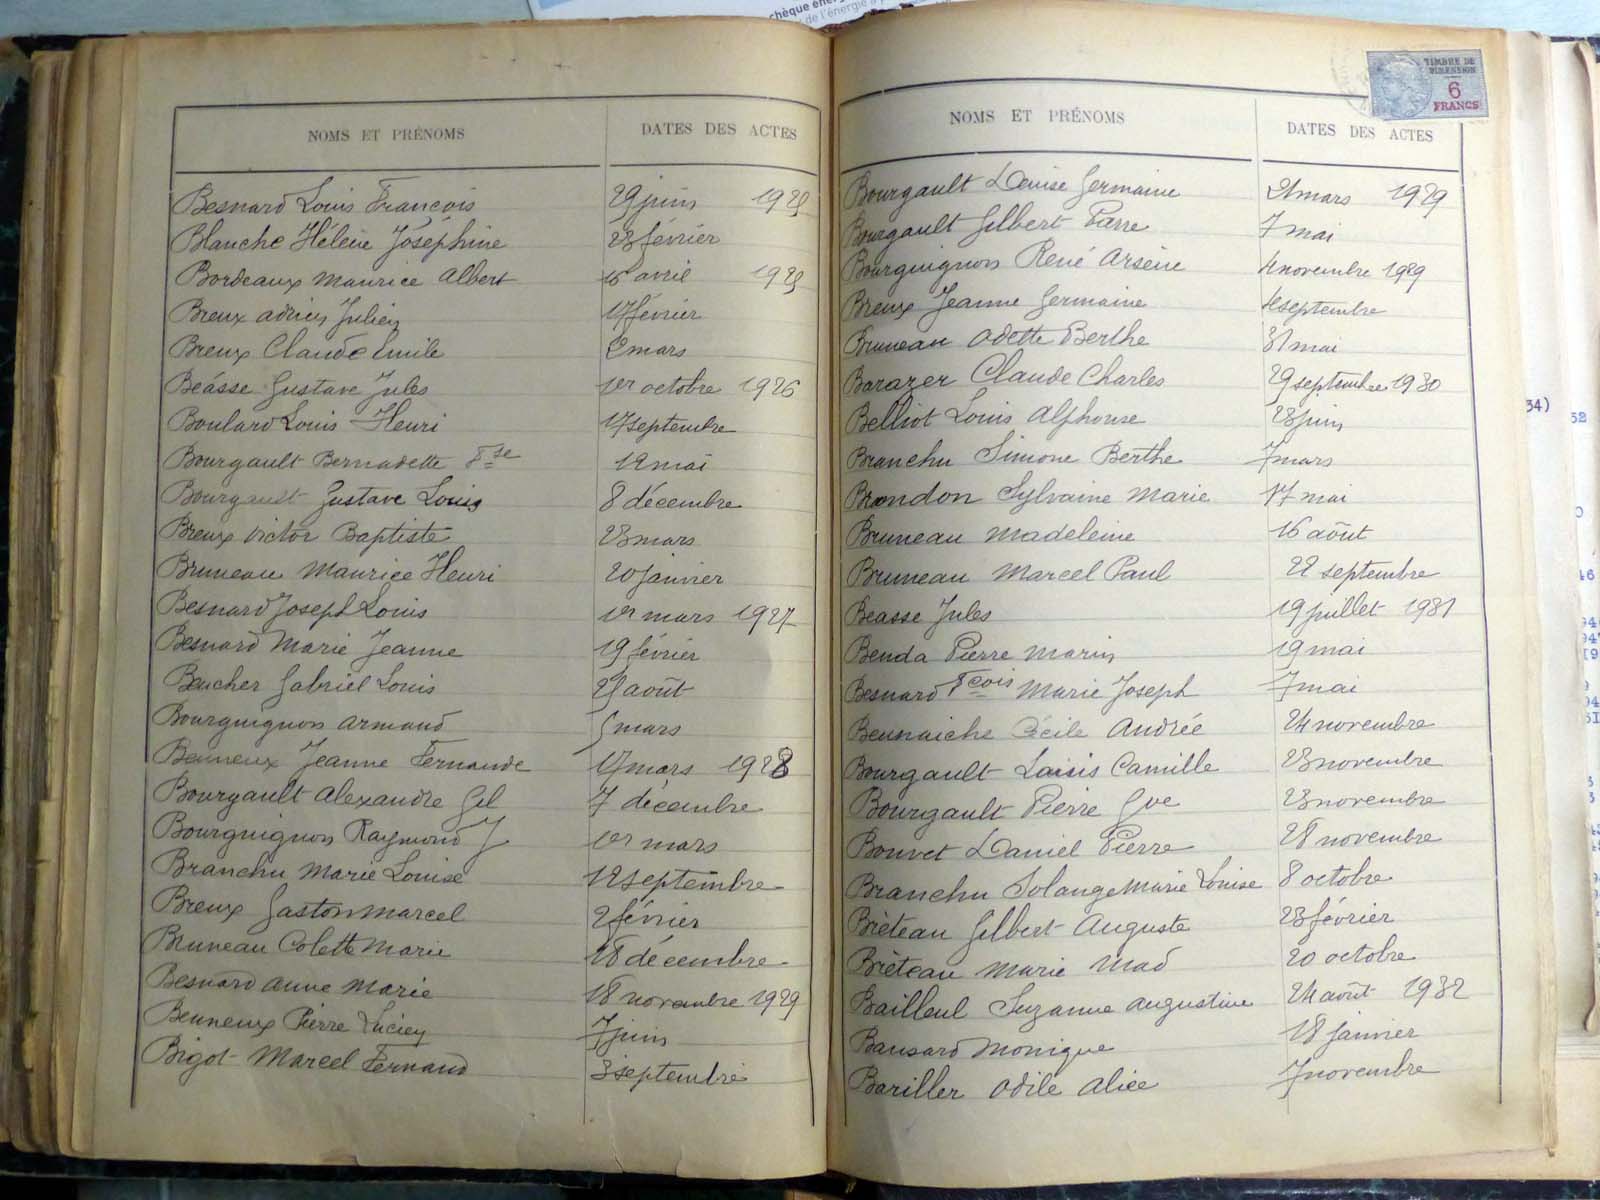 chèque éner
de l'énergie à p
NOMS ET PRÉNOMS DATES DES ACTES
Besnard Louis François 29 juin 1925
Blanche Hélène Joséphine 28 février
Bordeaux Maurice Albert 15 avril 1925
Breux Adrien Julien 17 février
Breux Claude Emile 2 mars
Beásse Gustave Jules 1er octobre 1926
Boulard Louis Henri 17 septembre
Bourgault Bernadette Fse 12 mai
Bourgault Gustave Louis 8 décembre
Breux Victor Baptiste 23 mars
Bruneau Maurice Henri 20 janvier
Besnard Joseph Louis 1er mars 1927
Besnard Marie Jeanne 19 février
Beucher Gabriel Louis août
Bourguignon Armand mars
Benneux Jeanne Fernande 17 mars 1928
Bourgault Alexandre Gel 7 décembre
Bourguignon Raymond J 1er mars
Branchu Marie Louise 12 septembre
Breux Gaston Marcel 2 février
Bruneau Colette Marie 18 décembre
Besnard Anne Marie 18 novembre 1929
Benneux Pierre Lucien 7 juin
Bigot Marcel Fernand 3 septembre
TIMBRE DE
DIMENSION
6
FRANCS
NOMS ET PRÉNOMS DATES DES ACTES
Bourgault Denise Germaine 21 mars 1929
Bourgault Gilbert Pierre 7 mai
Bourguignon René Arsène 4 novembre 1929
Breux Jeanne Germaine 4 septembre
Bruneau Odette Berthe 31 mai
Barazer Claude Charles 29 septembre 1930
Belliot Louis Alphonse 28 juin
Branchu Simone Berthe 7 mars
Brondon Sylvaine Marie 17 mai
Bruneau Madeleine 16 août
Bruneau Marcel Paul 22 septembre
Beasse Jules 19 juillet 1931
Benda Pierre Marin 19 mai
Besnard Fçois Marie Joseph 7 mai
Bennaiche Cécile Andrée 24 novembre
Bourgault Louis Camille 23 novembre
Bourgault Pierre Gve 23 novembre
Bouvet Daniel Pierre 28 novembre
Branchu Solange Marie Louise 8 octobre
Brèteau Gilbert Auguste 23 février
Brèteau Marie Mad 20 octobre
Bailleul Suzanne Augustine 24 août 1932
Bansard Monique 18 janvier
Bariller Odile Alice 7 novembre
34)